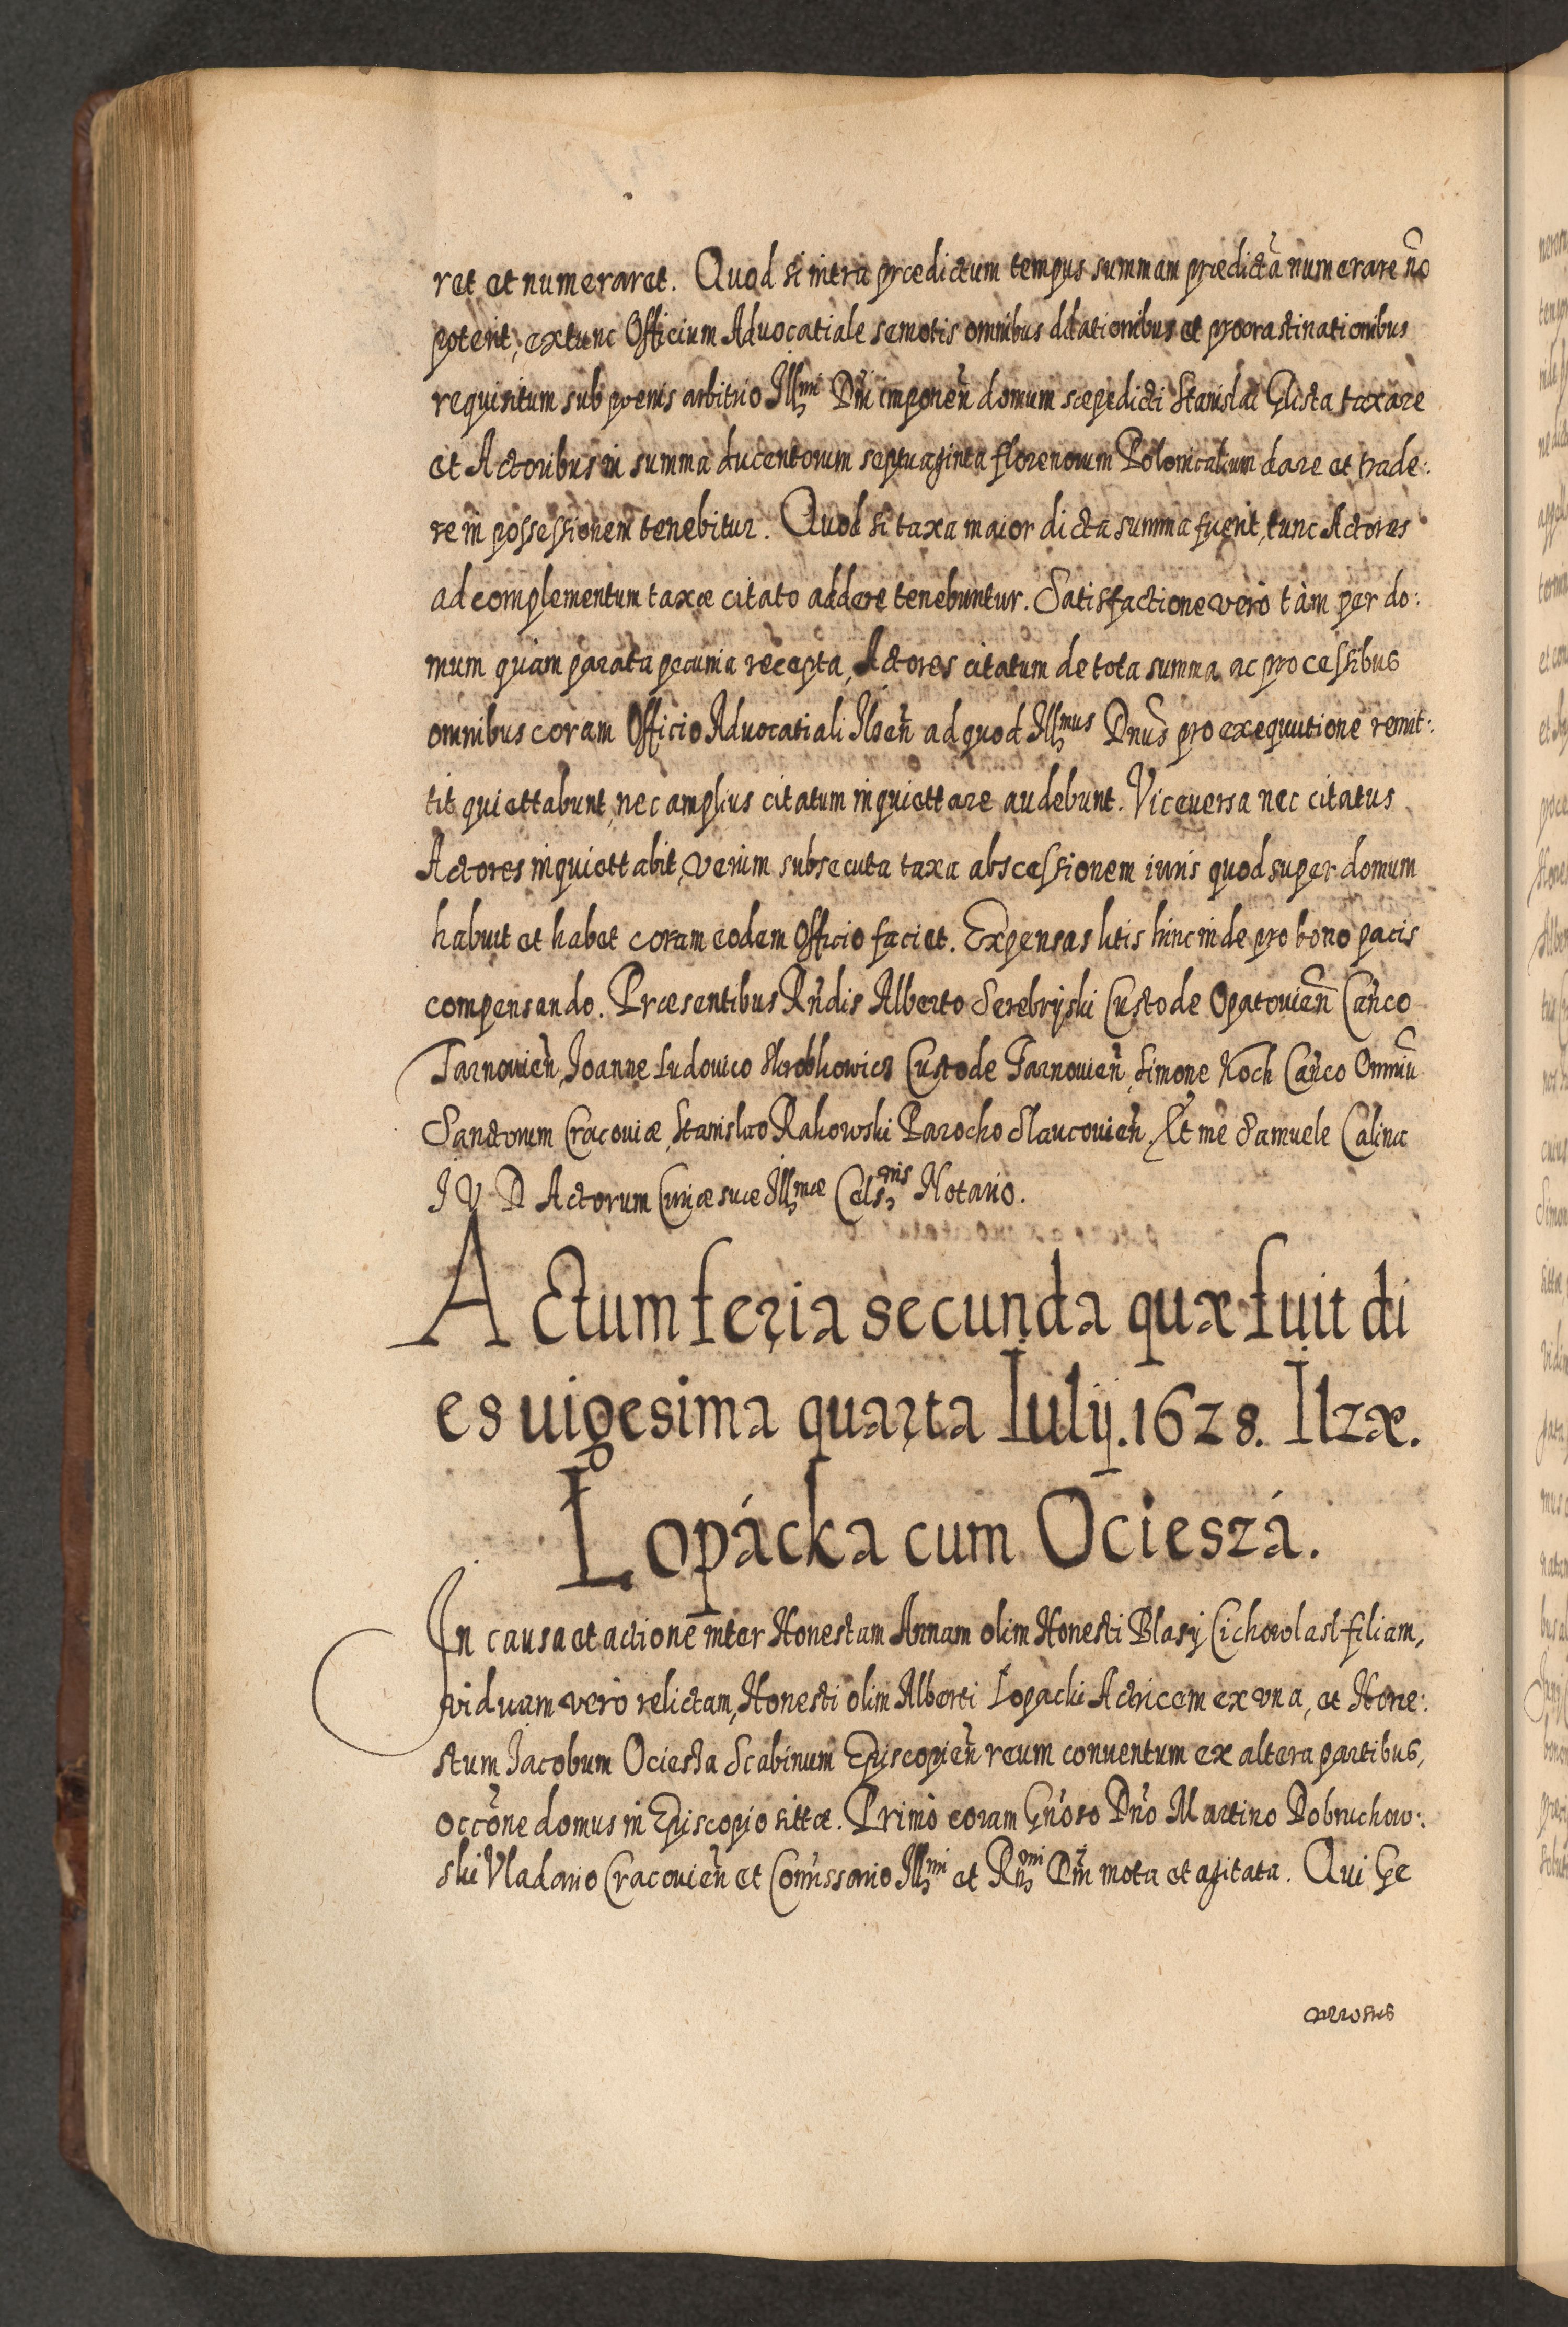 ret et numeraret. Quod si intra prædictum tempus summam prædictã numerare nõ
poterit, extunc Officium Advocatiale semotis omnibus dilationibus et procrastinationibus
requisitum sub pœnis arbitrio Illmi Dñi imponeñ domum sæpedicti Stanislai Glista taxare
et Actoribus in summa ducentorum septuaginta florenorum Polonicalium dare et trade:
re in possessionem tenebitur. Quod si taxa maior dicta summa fuerit, tunc Actores
ad complementum taxæ citato addere tenebuntur. Satisfactione vero tàm per do:
mum quam parata pecunia recepta, Actores citatum de tota summa ac processibus
omnibus coram Officio Advocatiali Ilseñ ad quod Illmus Dnũs pro exequutione remit:
tit quiettabunt, nec amplius citatum inquiettare audebunt. Viceversa nec citatus
Actores inquiettabit, verùm subsecuta taxa abscessionem iuris quod super domum
habuit et habet coram eodem Officio faciet. Expensas litis hinc inde pro bono pacis
compensando. Præsentibus Rñdis Alberto Serebryski Custode Opatovieñ Cañco
Tarnovieñ, Joanne Ludovico Skrobkowicz Custode Tarnovieñ, Simone Koch Cañco Omniũ
Sanctorum Cracoviæ, Stanislao Rakowski Parocho Slaucovieñ, Et me Samuele Calina
J V D Actorum Curiæ suæ Illmæ Celsnis Notario.
Actum feria secunda quæ fuit di
es uigesima quarta Iulij. 1628. Ilzæ.
Lopácka cum Ocieszá.
In causa et actione inter Honestam Annam olim Honesti Blasij Cichowlasl filiam,
viduam vero relictam, Honesti olim Alberti Łopacki Actricem ex una, et Hone:
stum Jacobum Ociesza Scabinum Episcopieñ reum conventum ex altera partibus,
occõne domus in Episcopio sittæ. Primò coram Gñoso Dño Martino Dobruchow:
ski Vladario Cracovieñ et Comissario Illmi et Rñmi Dñi mota et agitata. Qui Ge